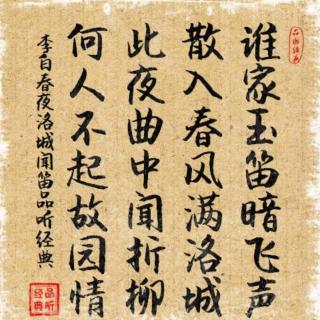 谁家玉笛暗飞声
散入春风满洛城
此夜曲中闻折柳
何人不起故园情
李白春夜洛城闻笛品听经典
品听经典